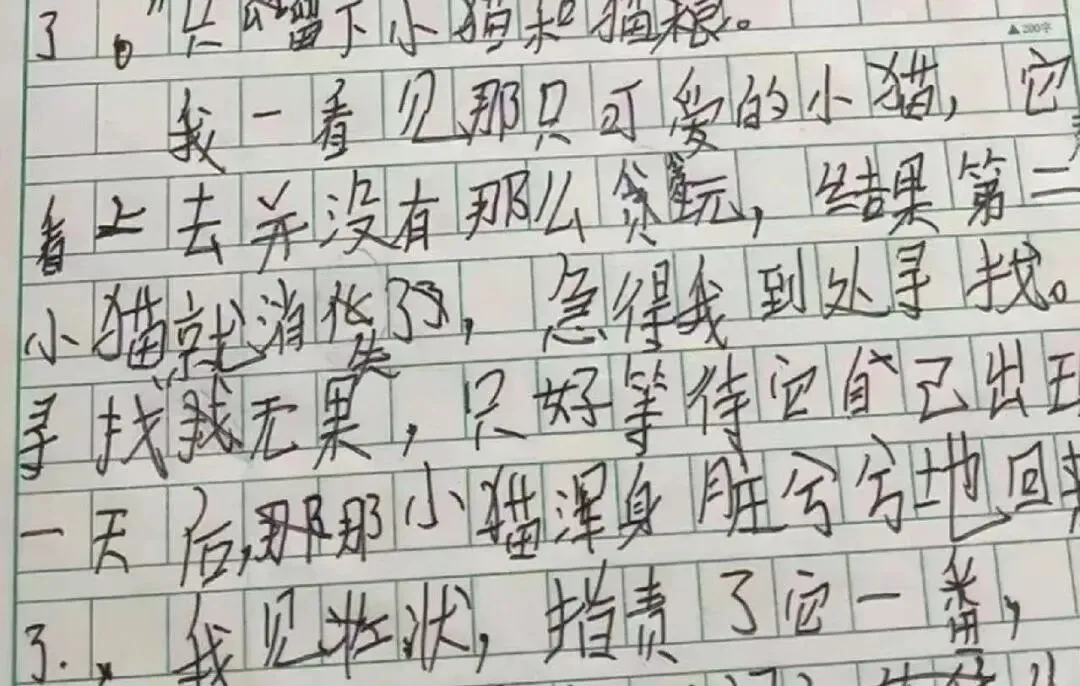 了。"只留下小猫和猫粮。
▲200字
我一看见那只可爱的小猫，它
看上去并没有那么贪玩，结果第二
小猫就消失了，急得我到处寻找。
寻找无果，只好等待它自己出现
一天后，那小猫浑身脏兮兮地回来
了．、我见状，指责了它一番，